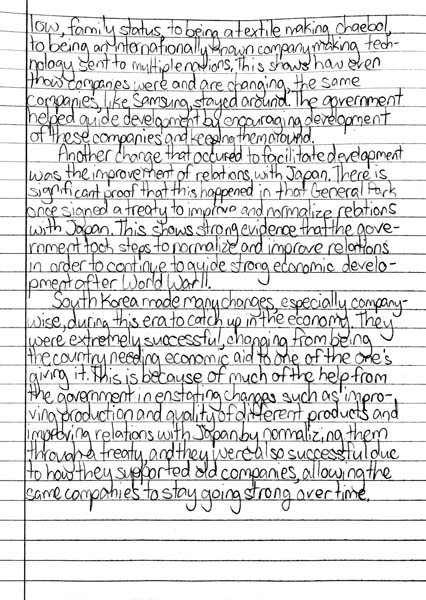 low, family status, to being a textile making chaebol,
to being an internationally known company making tech-
nology sent to multiple nations. This shows how even
though companies were and are changing, the same
companies, like Samsung, stayed around. The government
helped guide development by encouraging development
of these companies and keeping them around.
Another change that occured to facilitate development
was the improvement of relations with Japan. There is
significant proof that this happened in that General Park
once signed a treaty to improve and normalize relations
with Japan. This shows strong evidence that the gove-
rnment took steps to normalize and improve relations
in order to continue to guide strong economic develo-
pment after World War II.
South Korea made many changes, especially company-
wise, during this era to catch up in the economy. They
were extremely successful, changing from being
the country needing economic aid to one of the one's
giving it. This is because of much of the help from
the government in enstating changes such as impro-
ving production and quality of different products and
improving relations with Japan by normalizing them
through a treaty, and they were also successful due
to how they supported old companies, allowing the
same companies to stay going strong over time.